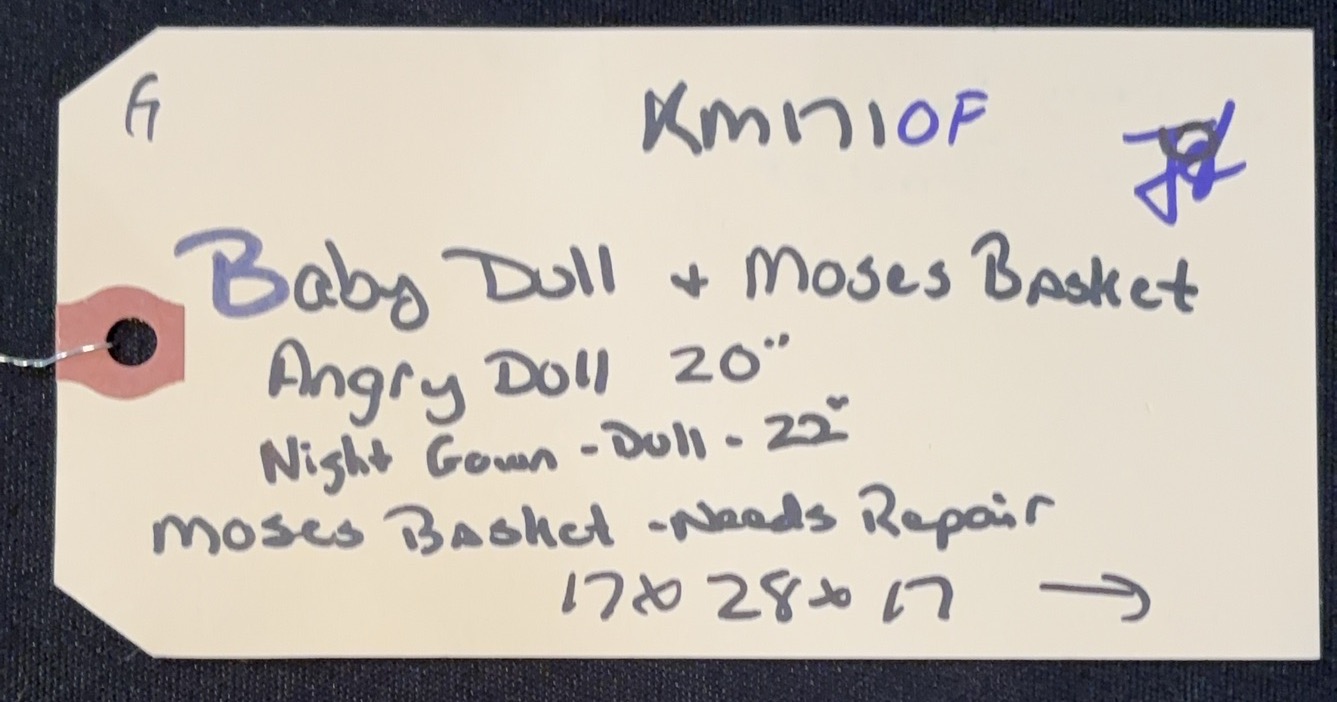 G KM1710F
Baby Doll + Moses Basket
Angry Doll 20"
Night Gown - Doll - 22"
Moses Basket - Needs Repair
17x 28x 17 →